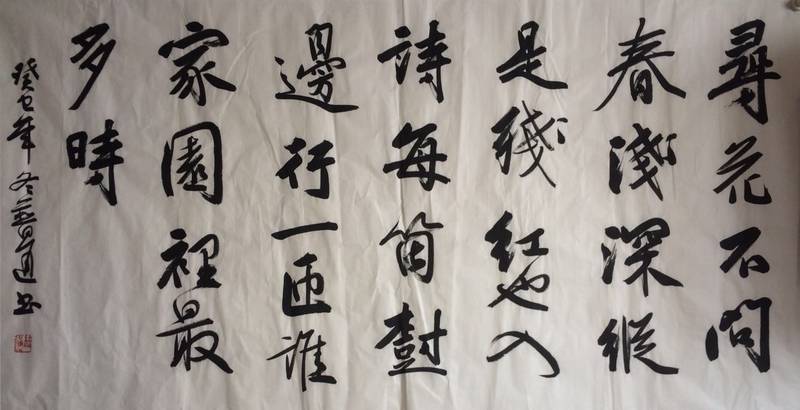 尋花不問
春淺深縱
是殘紅也入
詩每箇樹
邊行一匝誰
家園裡最
多時
癸巳年冬